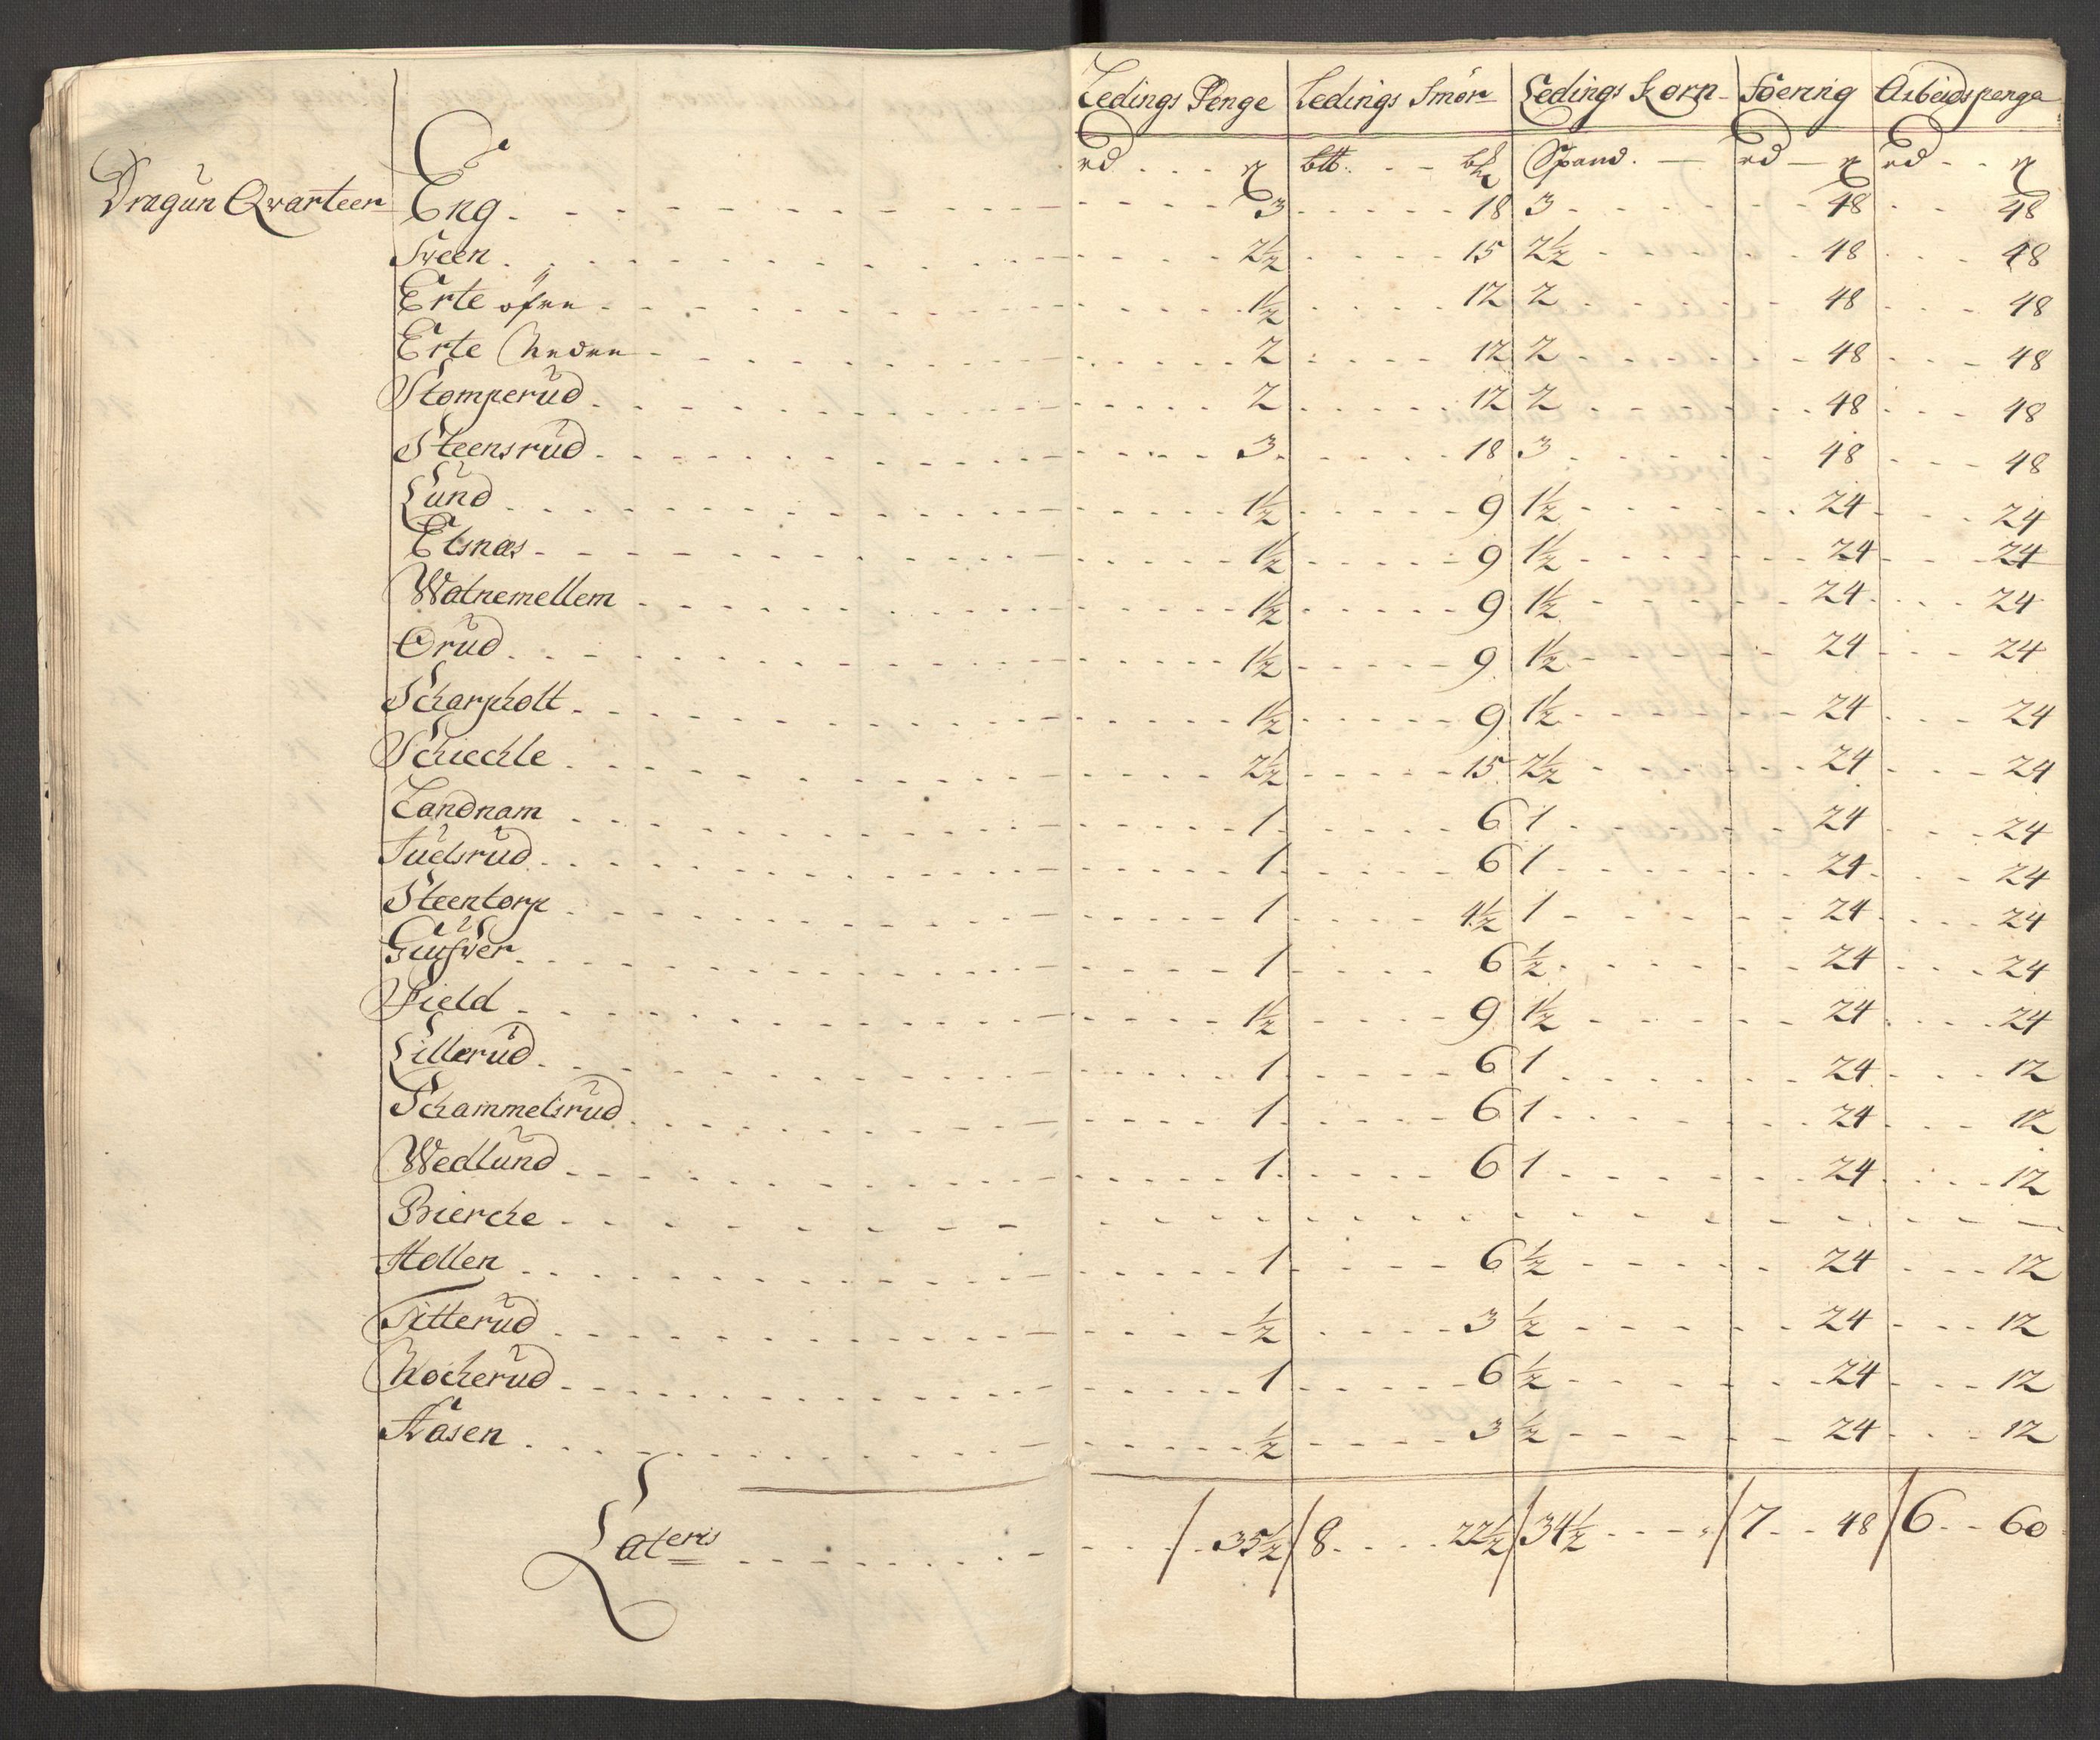 Ledings Penge Ledings Smör Ledings Korn Föering Arbeidspenge
rd ß btt: Spand. rd ß rd ß
Dragun Qvarteer Eng 3 18 3 48 48
Sveen 2½ 15 2½ 48 48
Erte öfre 1½ 12 2 48 48
Erte Nedre 2 12 2 48 48
Stomperud 2 12 2 48 48
Steensrud 3 18 3 48 48
Lund 1½ 9 1½ 24 24
Elsnæs 1½ 9 1½ 24 24
Watnemellem 1½ 9 1½ 24 24
Orud 1½ 9 1½ 24 24
Scharpholt 1½ 9 1½ 24 24
Schiechle 2½ 15 2½ 24 24
Landnam 1 6 1 24 24
Juelsrud 1 6 1 24 24
Steentorp 1 4½ 1 24 24
1 6 ½ 24 24
Field 1½ 9 1½ 24 24
Lillerud 1 6 1 24 12
Schammelsrud 1 6 1 24 12
Wedlund 1 6 1 24 12
Bierche
Hollen 1 6 ½ 24 12
Titterud ½ 3 ½ 24 12
Kocherud 1 6 ½ 24 12
Aasen ½ 3 ½ 24 12
Lateris / 35½ / 8 22½ / 34½ / 7 48 / 6 60